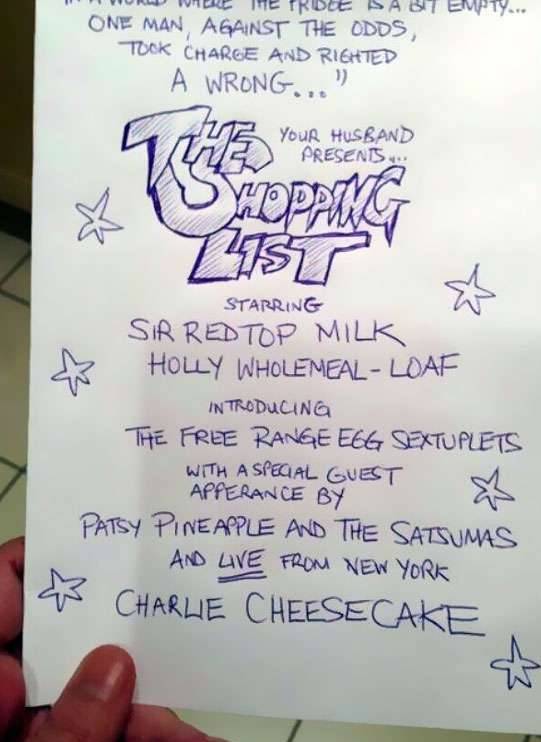 IN A WORLD WHERE THE FRIDGE IS A BIT EMPTY...
ONE MAN, AGAINST THE ODDS,
TOOK CHARGE AND RIGHTED
A WRONG..."
YOUR HUSBAND
PRESENTS...
THE
SHOPPING
LIST
STARRING
SIR REDTOP MILK
HOLLY WHOLEMEAL-LOAF
INTRODUCING
THE FREE RANGE EGG SEXTUPLETS
WITH A SPECIAL GUEST
APPERANCE BY
PATSY PINEAPPLE AND THE SATSUMAS
AND LIVE FROM NEW YORK
CHARLIE CHEESECAKE